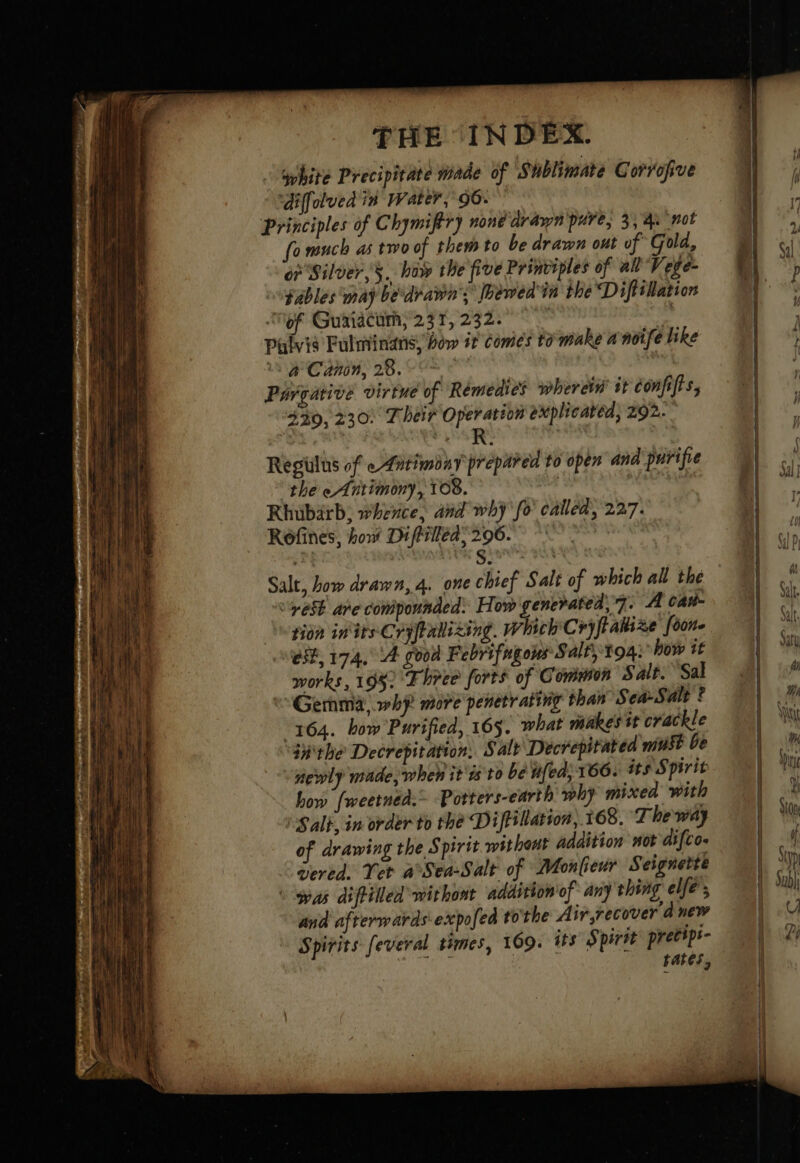 THE INDEX.
white Precipitate made of Sublimate Corrosive
dissolved in Water, 96.
Principles of Chymistry none drawn pure, 3, 4. not
so much as two of them to be drawn out of Gold,
or Silver, 5. how the five Principles of all Vege-
tables may be drawn; shewed in the Distillation
of Guaiacum, 231, 232.
Pulvis Fulminans, how it comes to make a noise like
a Canon, 28.
Purgative virtue of Remedies wherein it consists,
229, 230. Their Operation explicated, 292.
R.
Regulus of Antimony prepared to open and purifie
the Antimony, 108.
Rhubarb, whence, and why so called, 227.
Rosines, how Distilled, 296.
S.
Salt, how drawn, 4. one chief Salt of which all the
rest are compounded. How generated, 7. A cau-
tion in its Crystallizing. Which Crystallize soon-
est, 174. A good Febrifugous Salt, 194. how it
works, 195. Three sorts of Common Salt. Sal
Gemma, why more penetrating than Sea-Salt?
164. how Purified, 165. what makes it crackle
in the Decrepitation. Salt Decrepitated must be
newly made, when it is to be used, 166. its Spirit
how sweetned. Potters-earth why mixed with
Salt, in order to the Distillation, 168. The way
of drawing the Spirit without addition not disco-
vered. Yet a Sea-Salt of Monsieur Seignette
was distilled without addition of any thing else;
and afterwards exposed to the Air, recover'd new
Spirits several times, 169. its Spirit precipi-
tates,